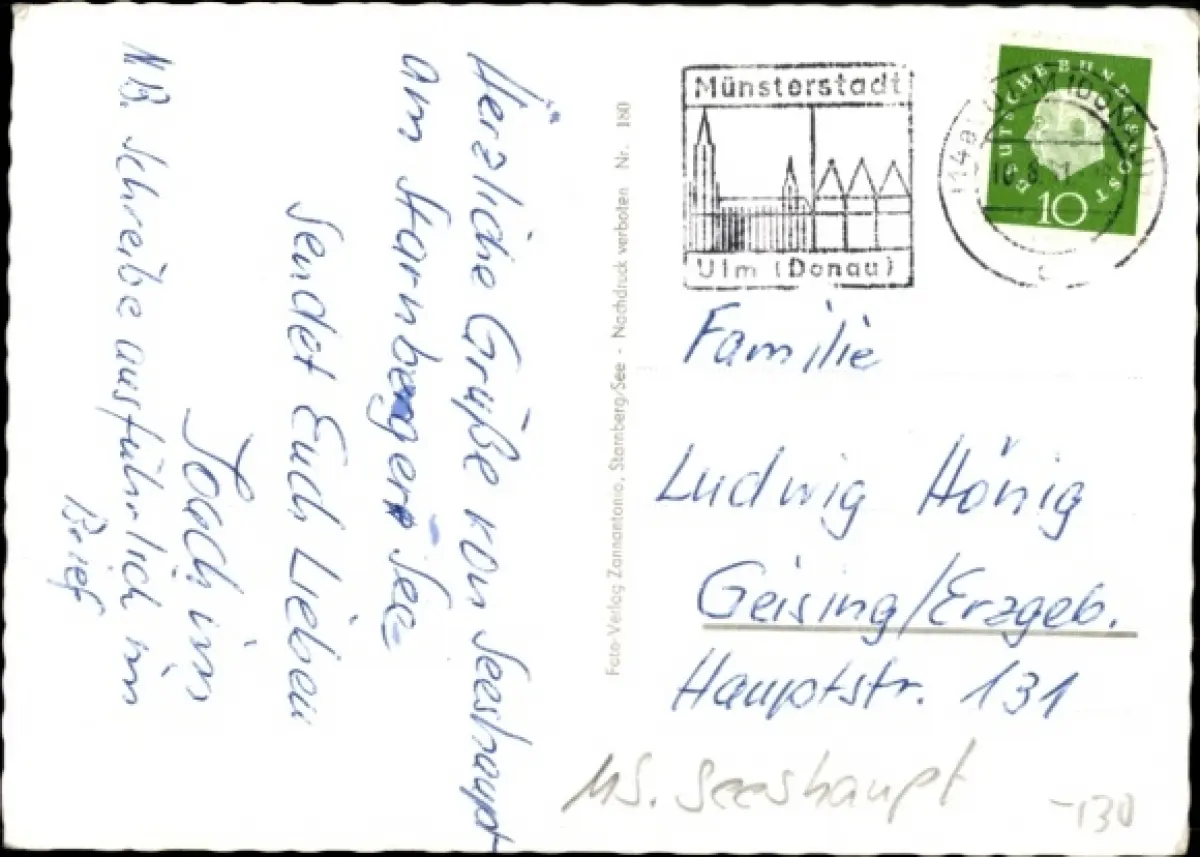 Herzliche Grüße von Seeshaupt
am Starnberger See
sendet Euch Lieben
Joachim
NB. Schreibe ausführlich im
Brief
Foto-Verlag Zannantonio, Starnberg/See - Nachdruck verboten Nr. 180
Münsterstadt
Ulm (Donau)
(14a) ULM (DONAU)
10.8.
c
DEUTSCHE BUNDESPOST
10
Familie
Ludwig Hönig
Geising/Erzgeb.
Hauptstr. 131
MS. Seeshaupt
-130